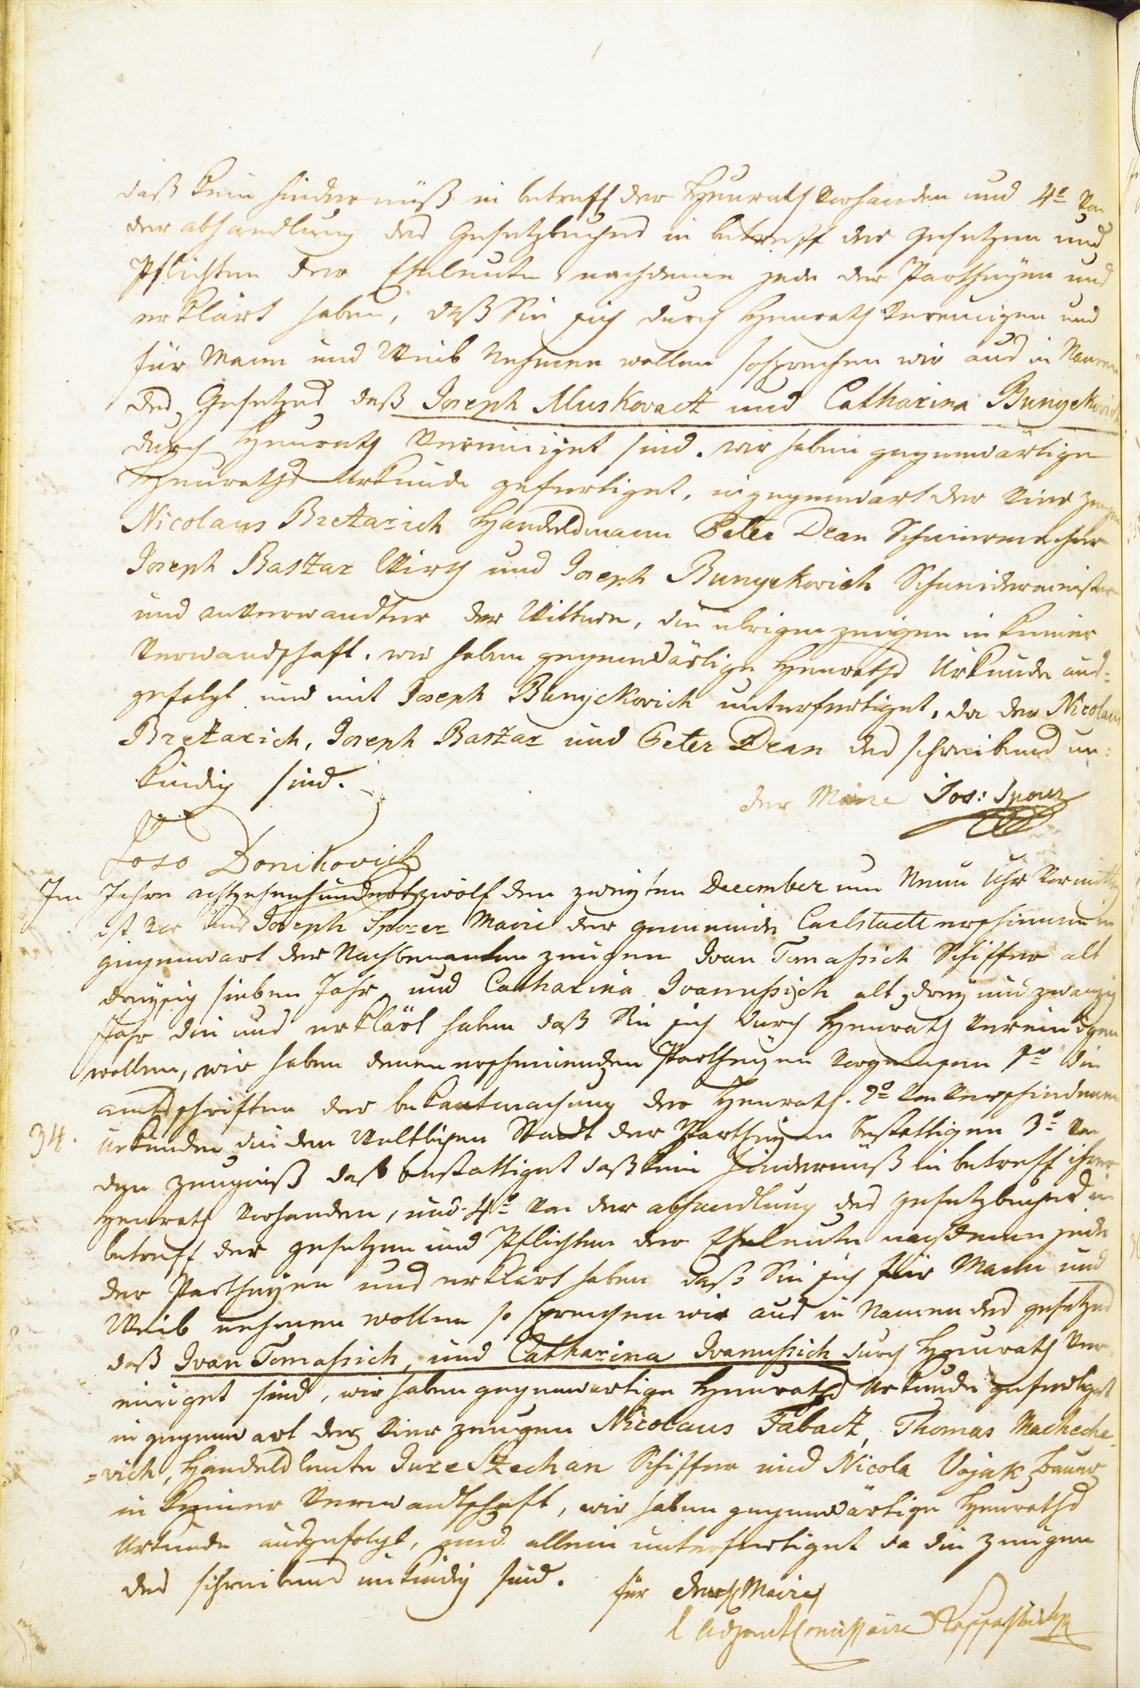 daß kein Hindernüß in betreff der Heurath vorhanden und 4º von
der abhandlung des Gesetzbuches in betreff der Gesetzen und
Pflichten der Eheleute, nachdeme jede der Partheyen uns
erklärt haben, daß Sie sich durch Heurath vereinigen und
für Mann und Weib Nehmen wollen so sprechen wir aus in Namen
des Gesetzes, daß Joseph Muskovact und Catharina Bunyekovich
durch Heurath Vereiniget sind. wir haben gegenwärtige
Heuraths Urkunde gefertiget, in gegenwart der vier zeugen
Nicolaus Bretarich Handelsmann Peter Dean
Joseph Bastar Wirth und Joseph Bunyekovich Schneidermeister
und anverwandter der Wittwe, die übrigen zeugen in keiner
Verwandschaft. wir haben gegenwärtige Heuraths Urkunde aus=
gefolgt und mit Joseph Bunyekovich unterfertiget, da den Nicolaus
Bretarich, Joseph Bastar und Peter Dean des schreibens un=
kündig sind.
der Maire Jos: Sporer
Joso Donikovich
Im Jahre achtzehenhundertzwölf den zweyten December um Neun Uhr Vormittag
ist vor uns Joseph Sporer Maire der gemeinde Carlstadt erschienen in
gegenwart der Nachbenanten zeugen Ivan Tomassich Schiffer alt
dreysig sieben Jahr, und Catharina Ivanussich alt drey und zwanzig
Jahr die uns erklärt haben daß Sie sich durch Heurath Vereinigen
wollen, wir haben denen erscheinenden Partheyen vorgelesen 1º die
amtsschriften der bekantmachung der Heurath. 2º von Verschiedenen
34. Urkunden die den Stand der Partheyen bestättigen 3º von
den Zeugniß daß bestättiget daß kein Hindernüß in betreff ihrer
Heurath vorhanden, und 4º von der abhandlung des gesetzbuches in
betreff der gesetzen und Pflichten der Eheleute nachdeme jede
der Partheyen uns erklärt haben daß Sie sich für Mann und
Weib nehmen wollen so sprechen wir aus in Namen des gesetzes
daß Ivan Tomassich, und Catharina Ivanussich durch Heurath Ver=
einiget sind, wir haben gegenwärtige Heuraths Urkunde gefertiget
in gegenwart der vier zeugen Nicolaus Tabact, Thomas Machecha=
=vich, Handelsleute Jure Stechan Schiffer und Nicola Vojak Bauer
in keiner Verwandtschaft, wir haben gegenwärtige Heuraths
Urkunde ausgefolgt, und allein unterfertiget da die zeugen
des schreibens unkündig sind. für den Maire